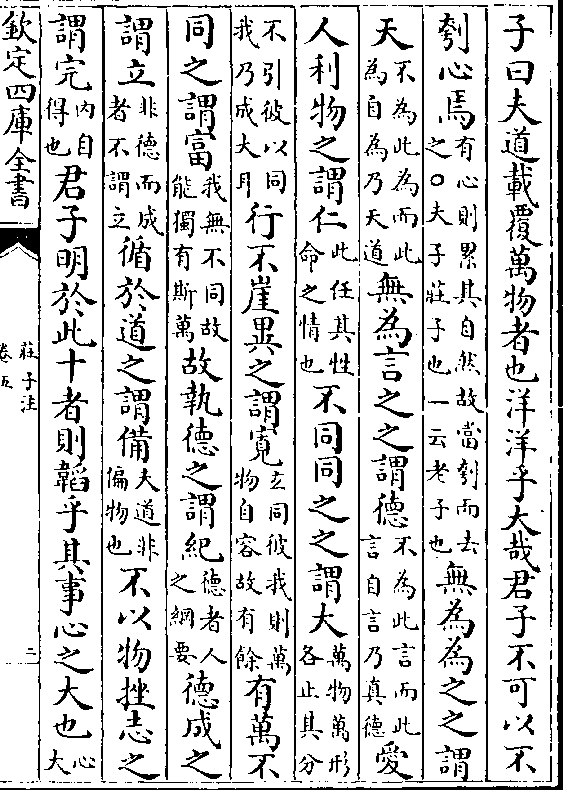 子曰夫道載覆萬物者也洋洋乎大哉君子不可以不
刳心焉有心則累其自然故當刳而去之○夫子莊子也一云老子也無為為之之謂
天不為此為而此為自為乃天道無為言之之謂德不為此言而此言自言乃真德愛
人利物之謂仁此任其性命之情也不同同之之謂大萬物萬形各止其分
不引彼以同我乃成大耳行不崖異之謂寬玄同彼我則萬物自容故有餘有萬不
同之謂富我無不同故能獨有斯萬故執德之謂紀德者人之綱要德成之
謂立非德而成者不謂立循於道之謂備夫道非偏物也不以物挫志之
謂完內自得也君子明於此十者則韜乎其事心之大也心大
欽定四庫全書
莊子注
卷五
二